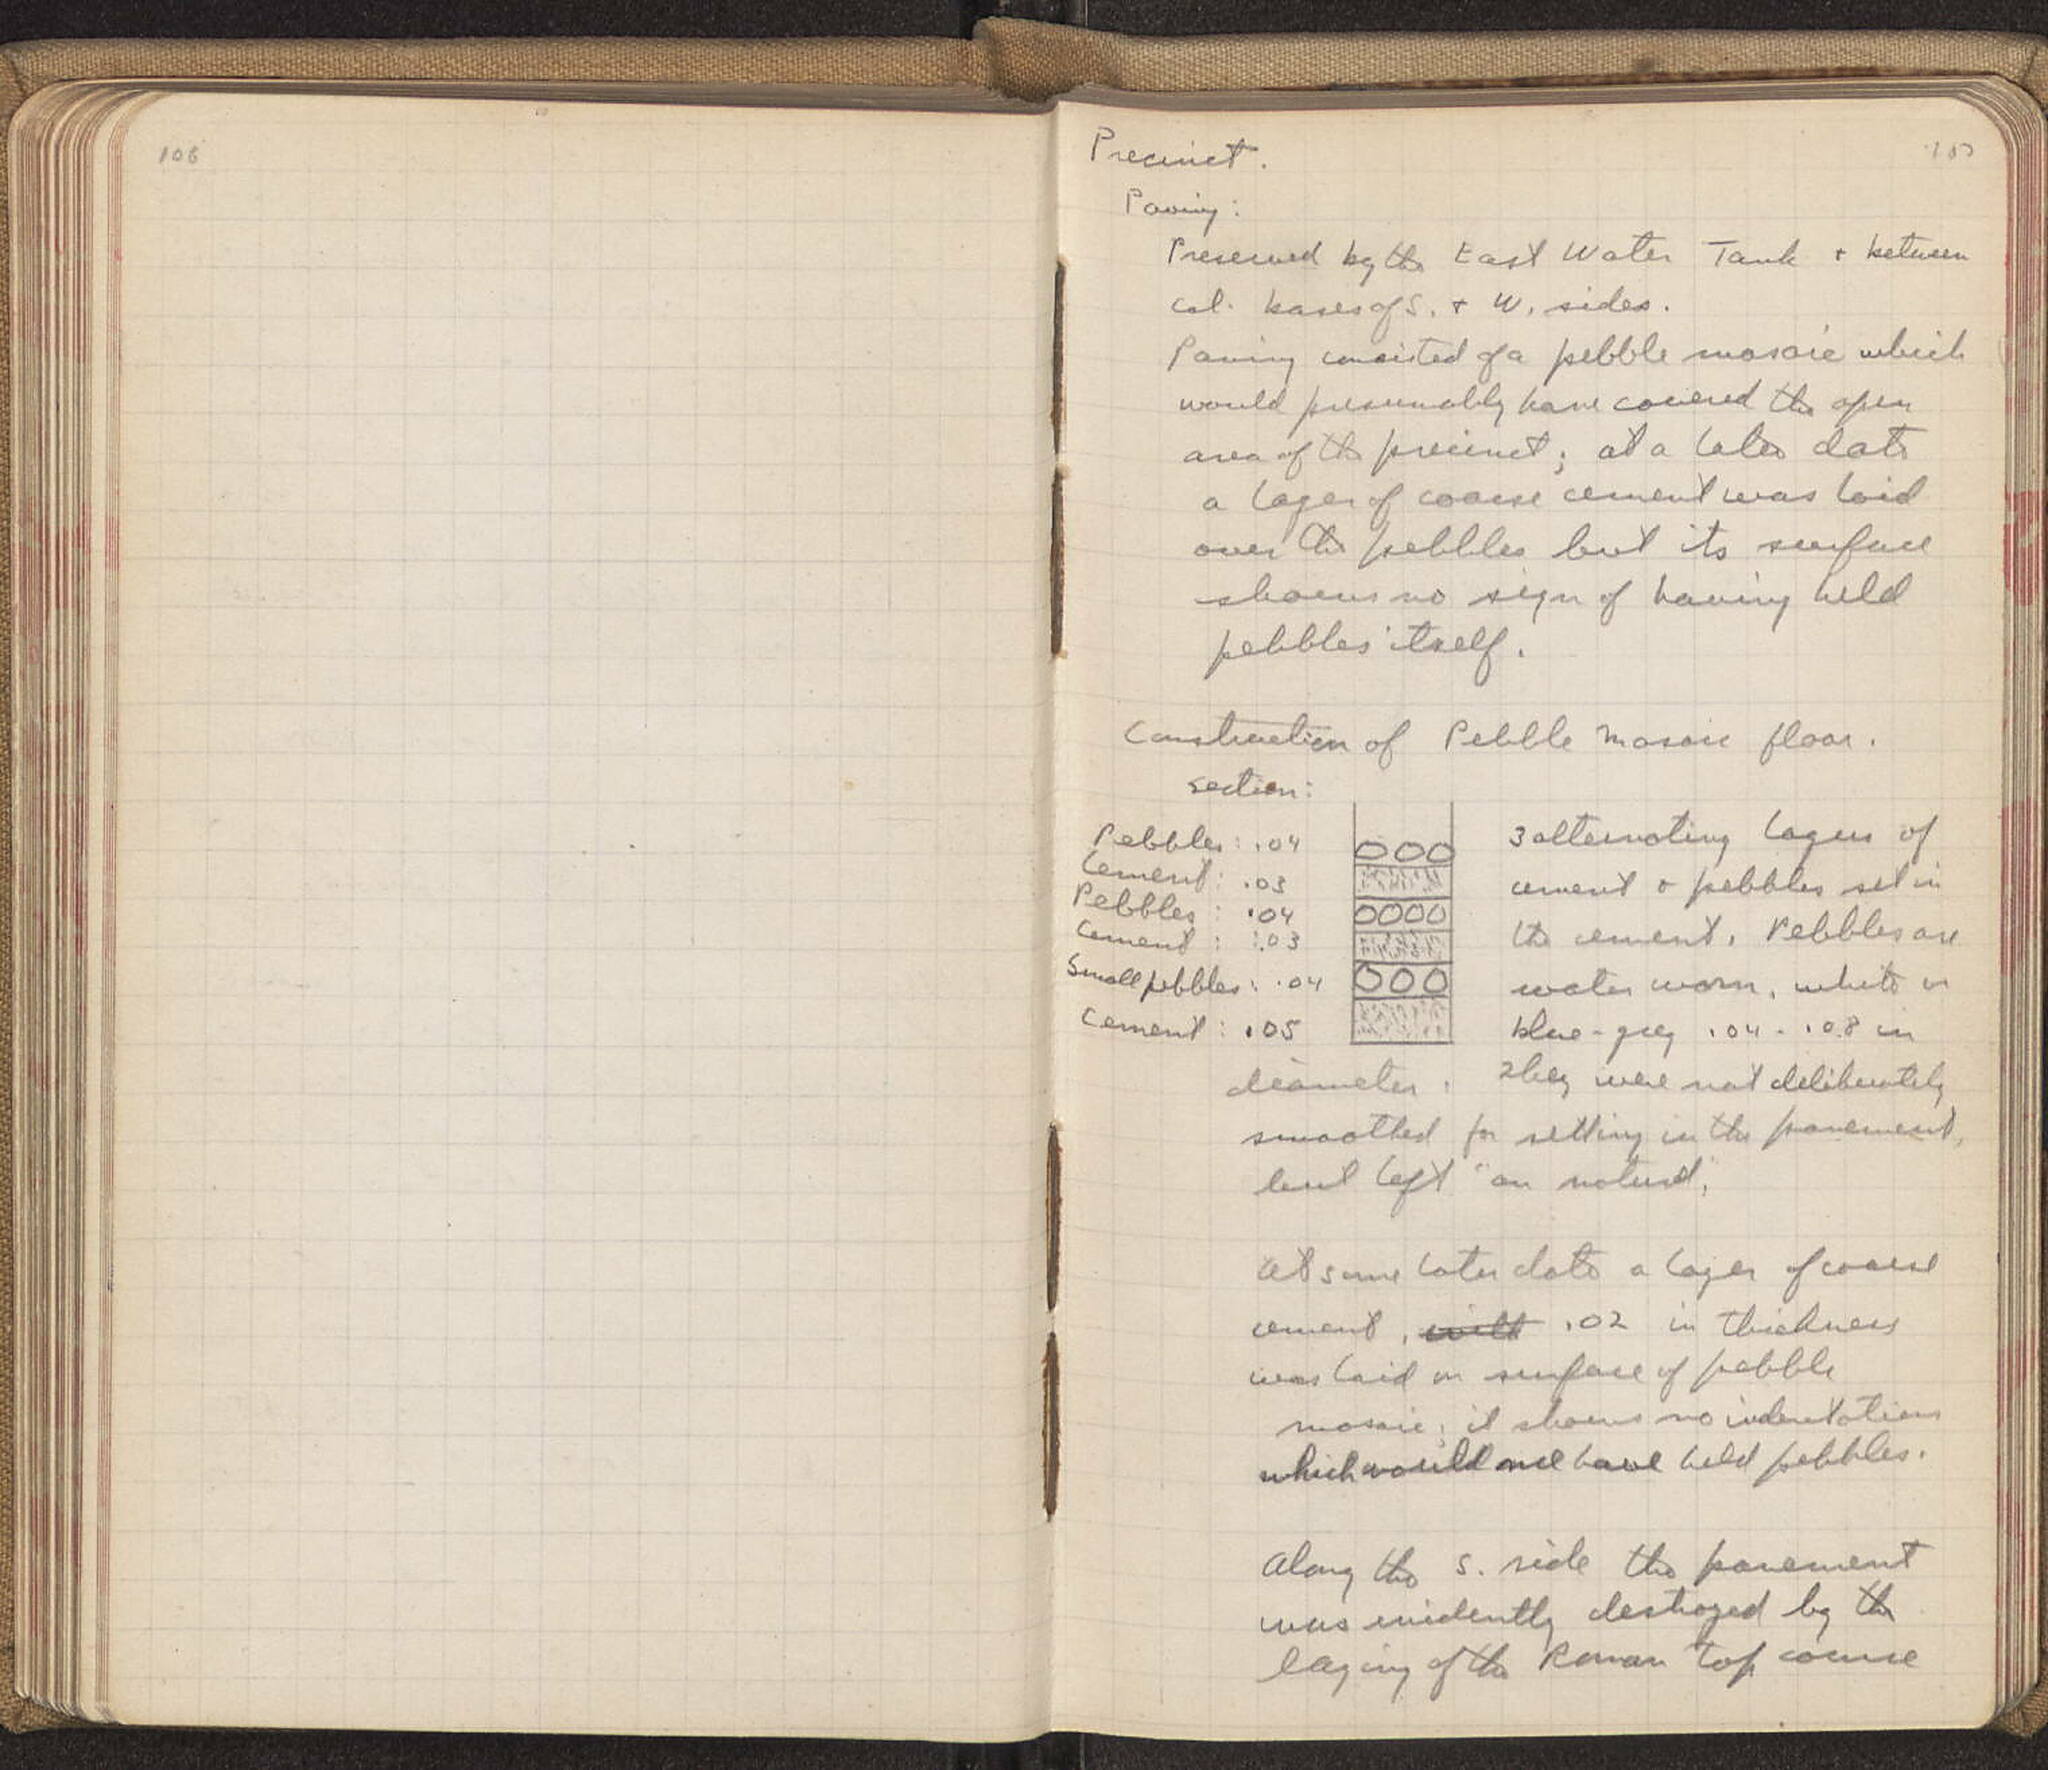 106
107
Precinct.
Paving:
Preserved by the East Water Tank + between
col. bases of S. + W. sides.
Paving consisted of a pebble mosaic which
would presumably have covered the open
area of the precinct; at a later date
a layer of coarse cement was laid
over the pebbles but its surface
shows no sign of having held
pebbles itself.
Construction of Pebble Mosaic floor.
Section:
Pebbles: .04
Cement: .03
Pebbles: .04
Cement: .03
Small pebbles: .04
Cement: .05
3 alternating layers of
cement & pebbles set in
the cement. Pebbles are
water worn, white or
blue-grey .04-.08 in
diameter. They were not deliberately
smoothed for setting in the pavement,
but left "au naturel".
At some later date a layer of coarse
cement, with .02 in thickness
was laid on surface of pebble
mosaic; it shows no indentations
which would have held pebbles.
Along the S. side the pavement
was evidently destroyed by the
laying of the Roman top course